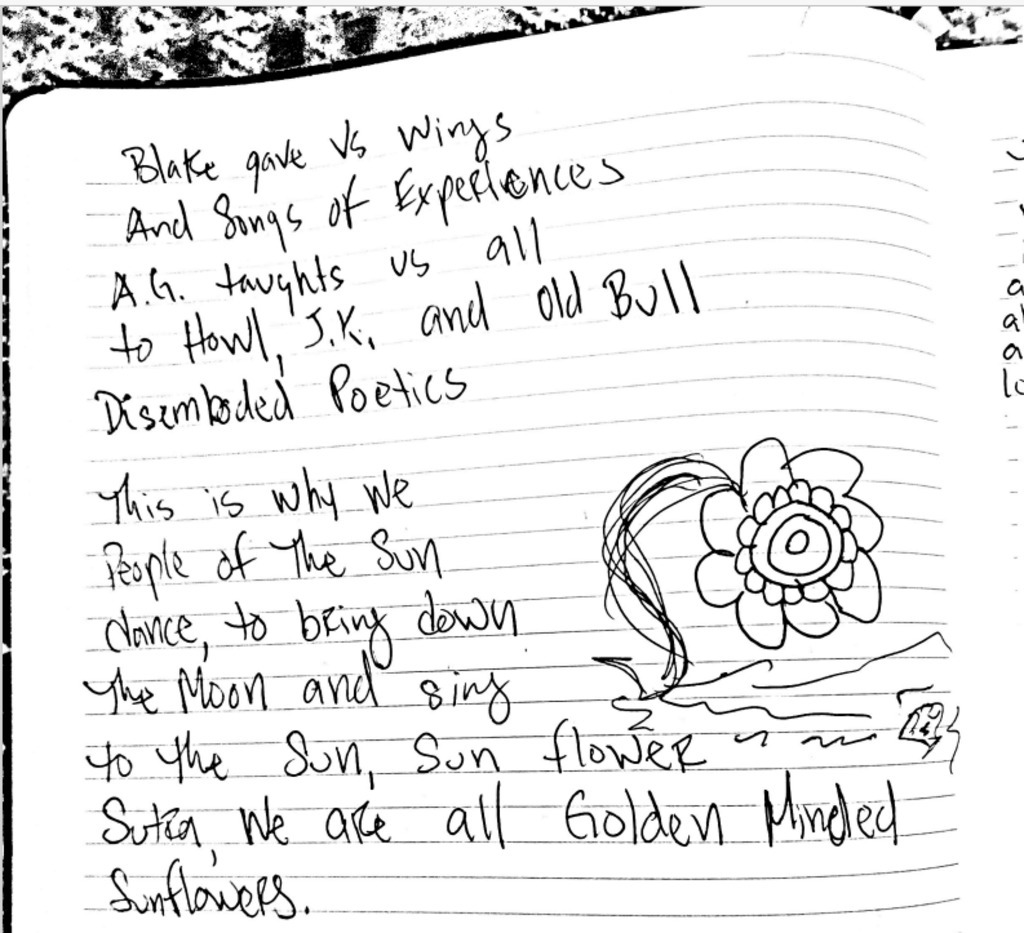 Blake gave Vs Wings
And Songs of Experiences
A.G. taughts us all
to Howl, J.K. and Old Bull
Disemboded Poetics
This is why We
People of The Sun
dance, to bring down
The Moon and sing
to The Sun, Sun flower
Sutra, We are all Golden Minded
Sunflowers.